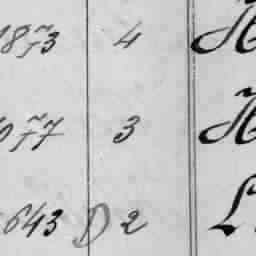 1873 4 H
1077 3 H
643 D 2 L